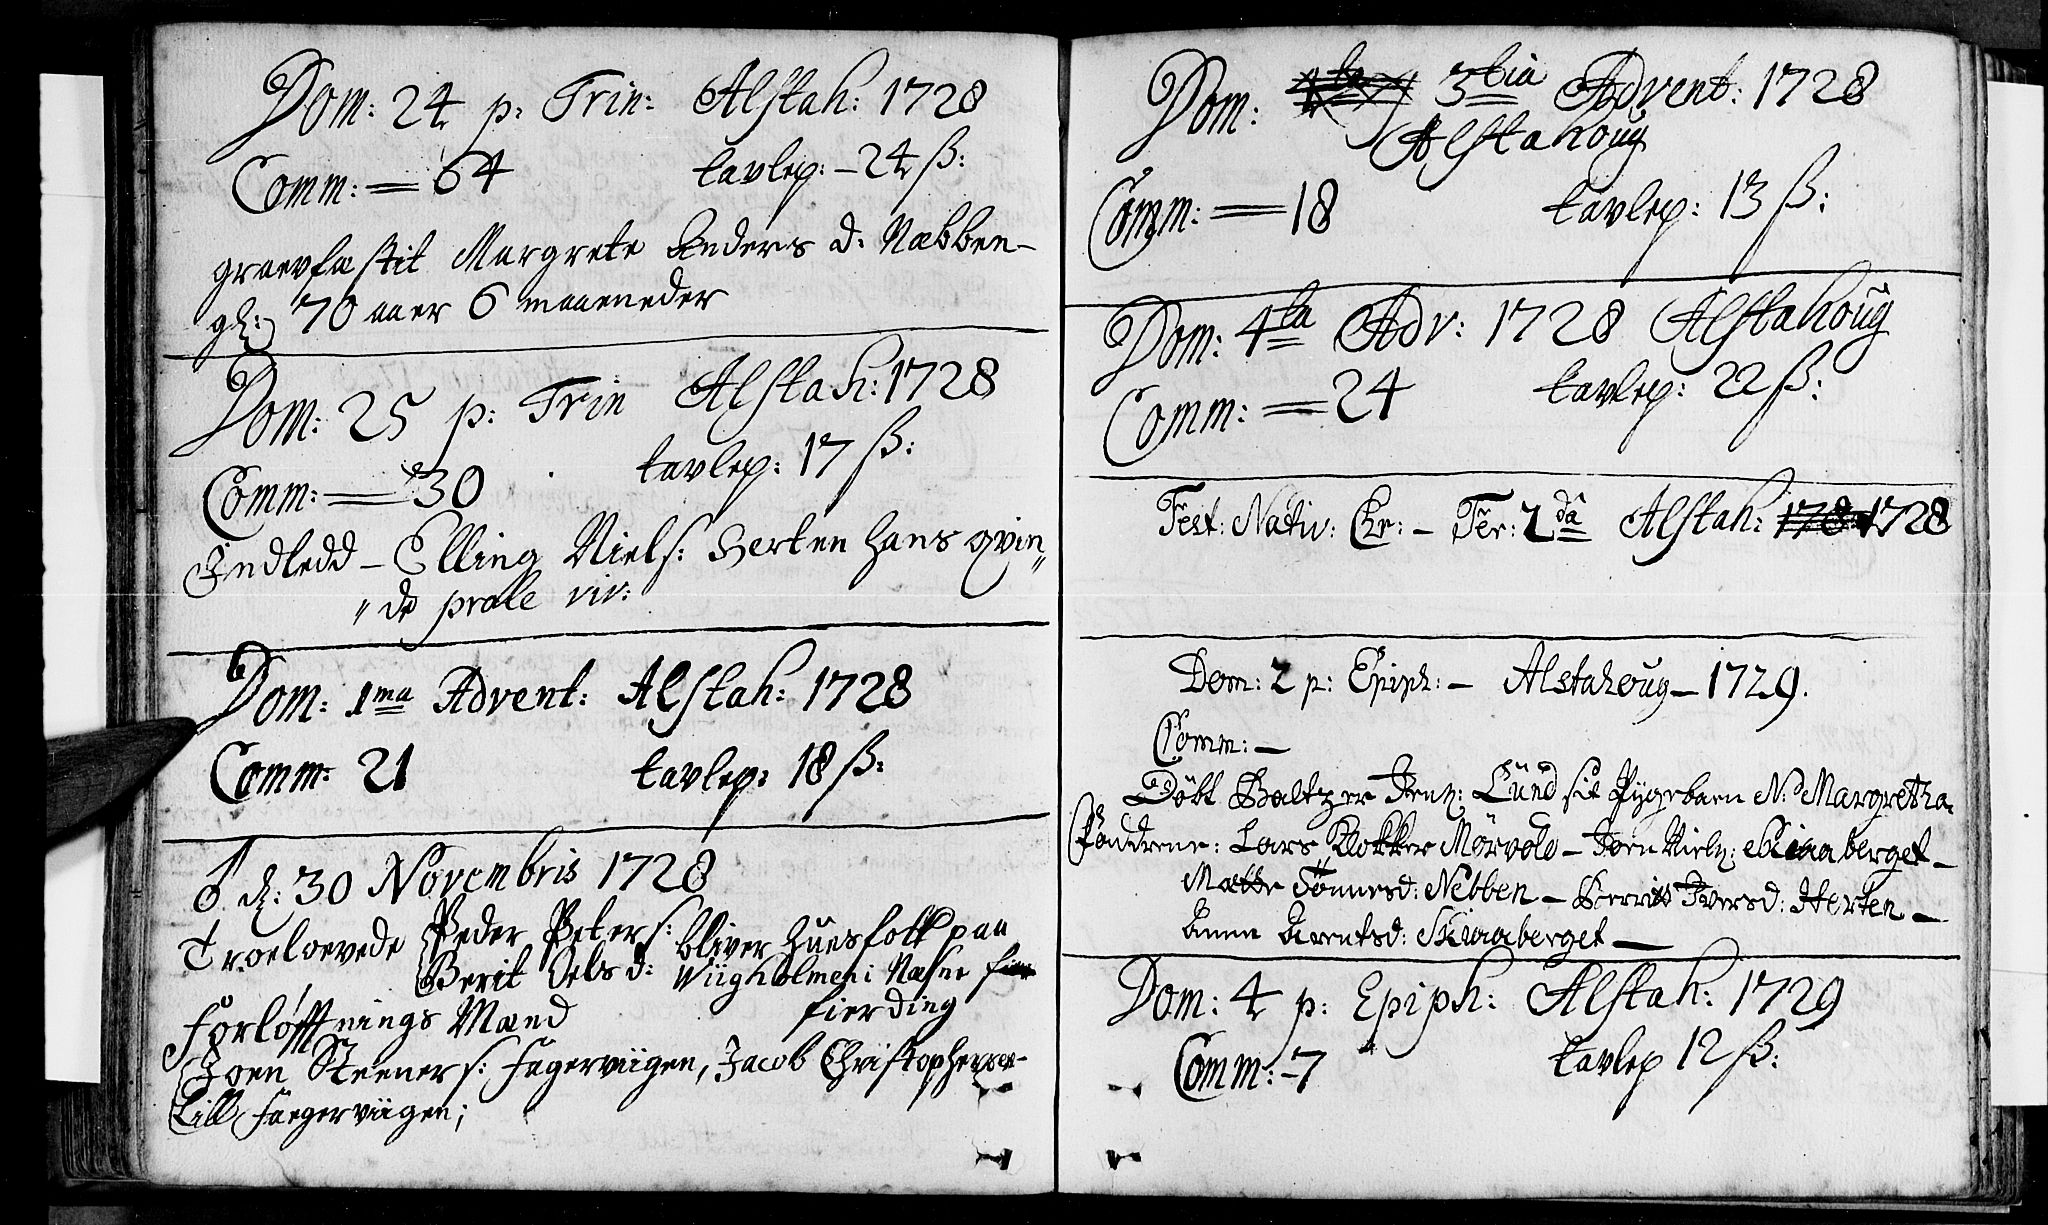 Dom: 24 p: Trin: Alstah: 1728
Comm: = 64 tavlep: - 24 ß:
graevfæstit Margrete Anders d: Næbben -
gl: 70 aaer 6 maaeneder
Dom: 25 p: Trin Alstah: 1728
Comm: = 30 tavlep: 17 ß:
Indledd - Elling Niels: Herten hans qvin„
„de prole vir:
Dom: 1ma Advent: Alstah: 1728
Comm: 21 tavlep: 18 ß:
d: 30 Novembris 1728
Troeloevede Peder Peters: bliver huusfolk paa
Berit Oels d: Wiigholmen i Næsne
Forløfftnings Mænd fierding
Joen Steeners: Fagerviigen, Jacob Christophersen
Lill Faegerviigen;
Dom: 3tia Advent: 1728
Alstahoug
Comm: = 18 tavlep: 13 ß:
Dom: 4ta Adv: 1728 Alstahoug
Comm: = 24 tavlep: 22 ß:
Fest: Nativ: Chr: - Fer: 2da Alstah: 1728
Dom: 2 p: Epiph: - Alstahoug - 1729.
Comm: -
Døbt Baltzer Jenz: Lund sit Pygebarn N: Margretha.
Faddrene: Lars Bokker Mørvole - Joen Nielz: Skiaaberget -
Mætte Tønnersd: Nebben - Berritt Iversd: Herten -
Anne Arentsd: Skiaaberget -
Dom: 4 p: Epiph: Alstah: 1729
Comm: - 7 tavlep 12 ß: